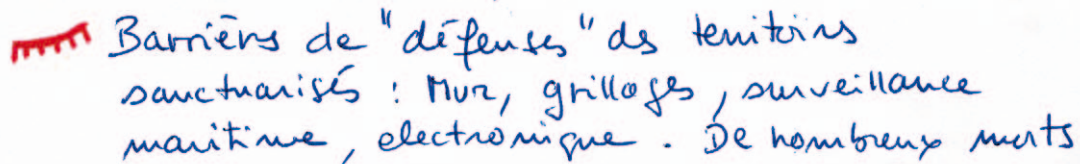 Barrières de "défenses" des territoires
sanctuarisés : Mur, grillages, surveillance
maritime, electronique. De nombreux morts